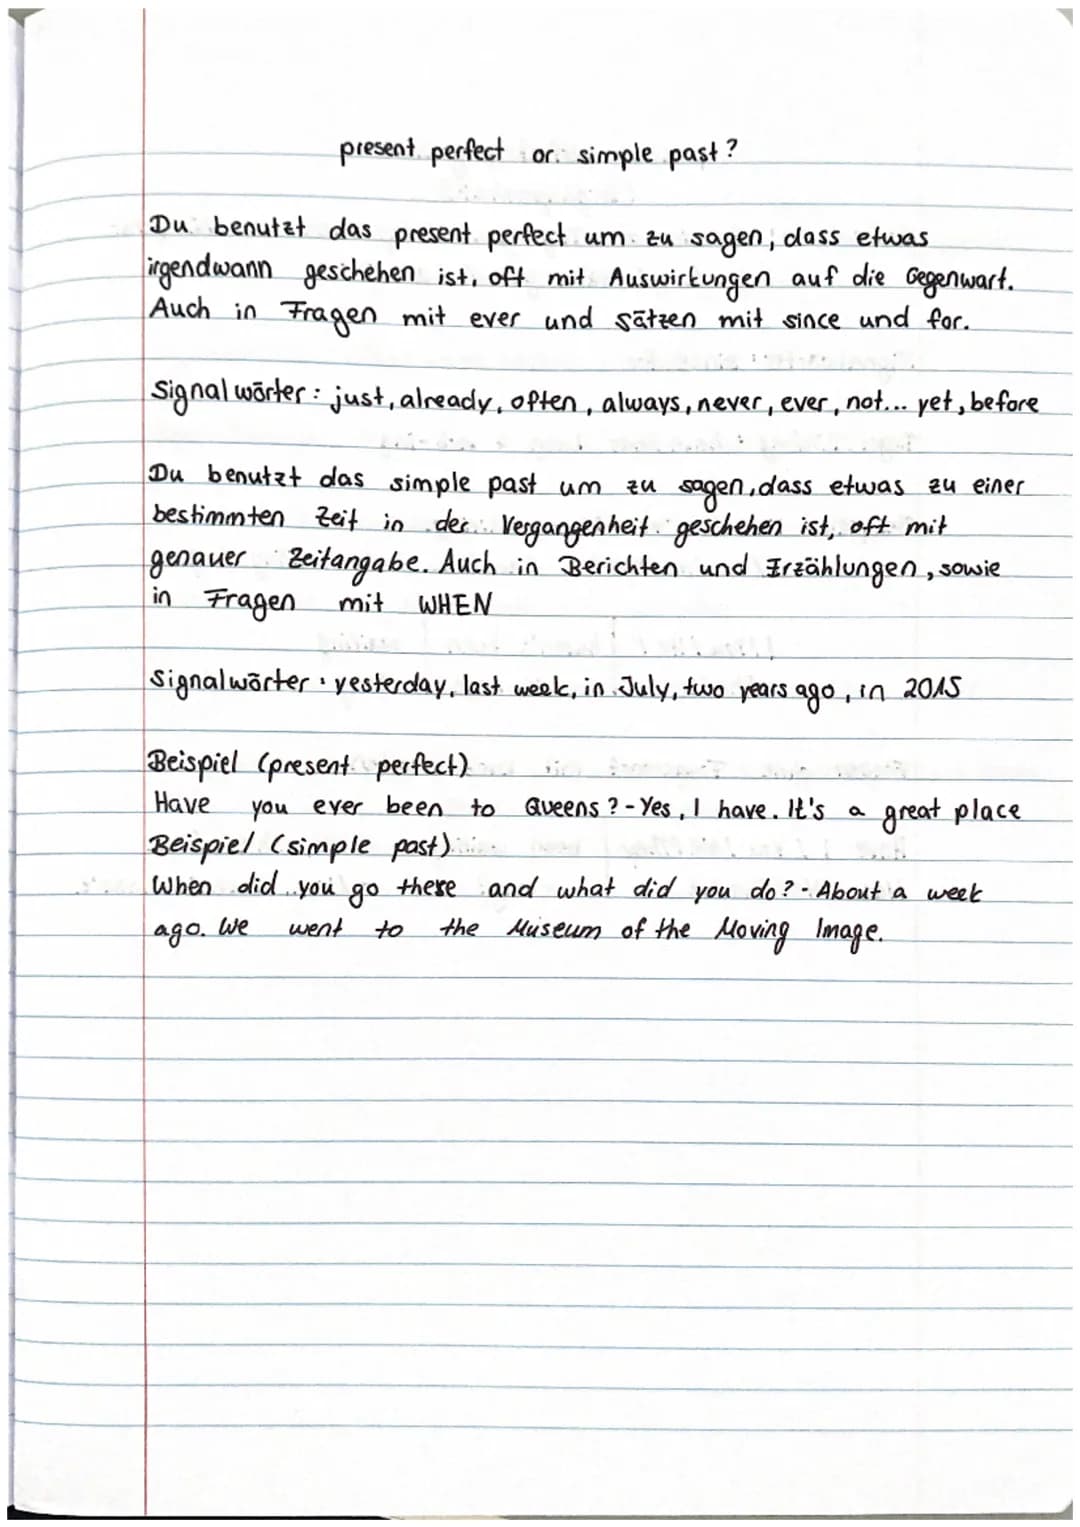 present perfect or simple past?
Du benutzt das present perfect um zu sagen, dass etwas
irgendwann geschehen ist, oft mit Auswirkungen auf die Gegenwart.
Auch in Fragen mit ever und sätzen mit since und for.
Signalwörter: just, already, often, always, never, ever, not... yet, before
Du benutzt das simple past um zu sagen, dass etwas zu einer
bestimmten Zeit in der Vergangenheit geschehen ist, oft mit
genauer Zeitangabe. Auch in Berichten und Erzählungen, sowie
in Fragen mit WHEN
Signalwörter: yesterday, last week, in July, two years ago, in 2015
Beispiel (present perfect)
Have you ever been to Queens? - Yes, I have. It's a great place
Beispiel (simple past)
When did you go there and what did you do? - About a week
ago. We went to the Museum of the Moving Image.